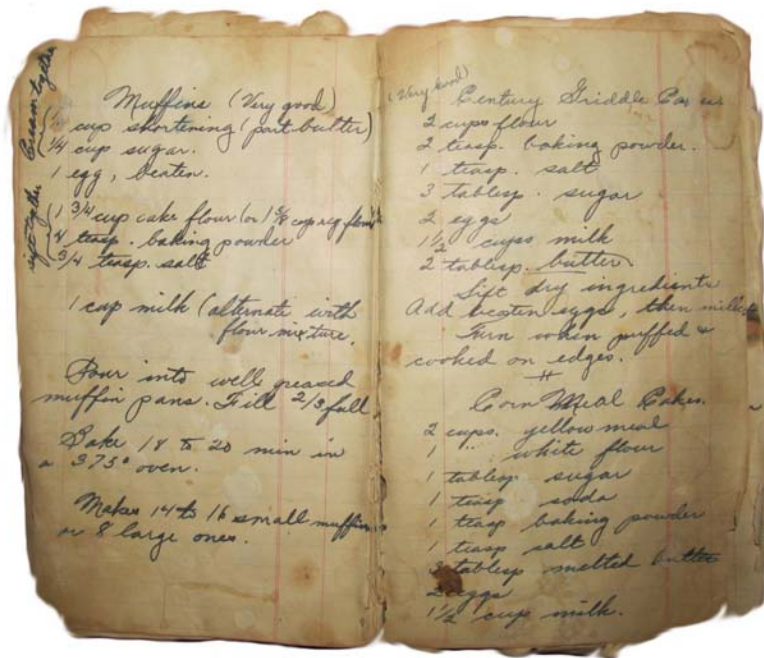 Cream together
Muffins (Very good)
1/4 cup shortening (part butter)
1/4 cup sugar.
1 egg, beaten.
sift together
1 3/4 cup cake flour (or 1 5/8 cup reg flour)
4 teasp. baking powder
3/4 teasp. salt
1 cup milk (alternate with
flour mixture.
Pour into well greased
muffin pans. Fill 2/3 full
Bake 18 to 20 min in
a 375° oven.
Makes 14 to 16 small muffins
or 8 large ones.
(Very good)
Century Griddle Cakes
2 cups flour
2 teasp. baking powder.
1 teasp. salt
3 tablesp. sugar
2 eggs
1 1/2 cups milk
2 tablesp. butter.
Sift dry ingredients
Add beaten eggs, then milk
Turn when puffed &
cooked on edges.
Corn Meal Cakes.
2 cups. yellow meal
1 " white flour
1 tablesp sugar
1 teasp soda
1 teasp baking powder
1 teasp salt
3 tablesp melted butter
2 eggs
1 1/2 cup milk.